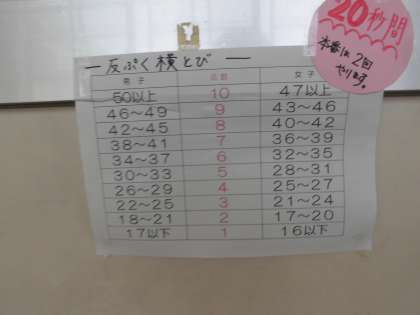 20秒間
本番は2回
やります。
反ぷく横とび
男子 点数 女子
50以上 10 47以上
46～49 9 43～46
42～45 8 40～42
38～41 7 36～39
34～37 6 32～35
30～33 5 28～31
26～29 4 25～27
22～25 3 21～24
18～21 2 17～20
17以下 1 16以下